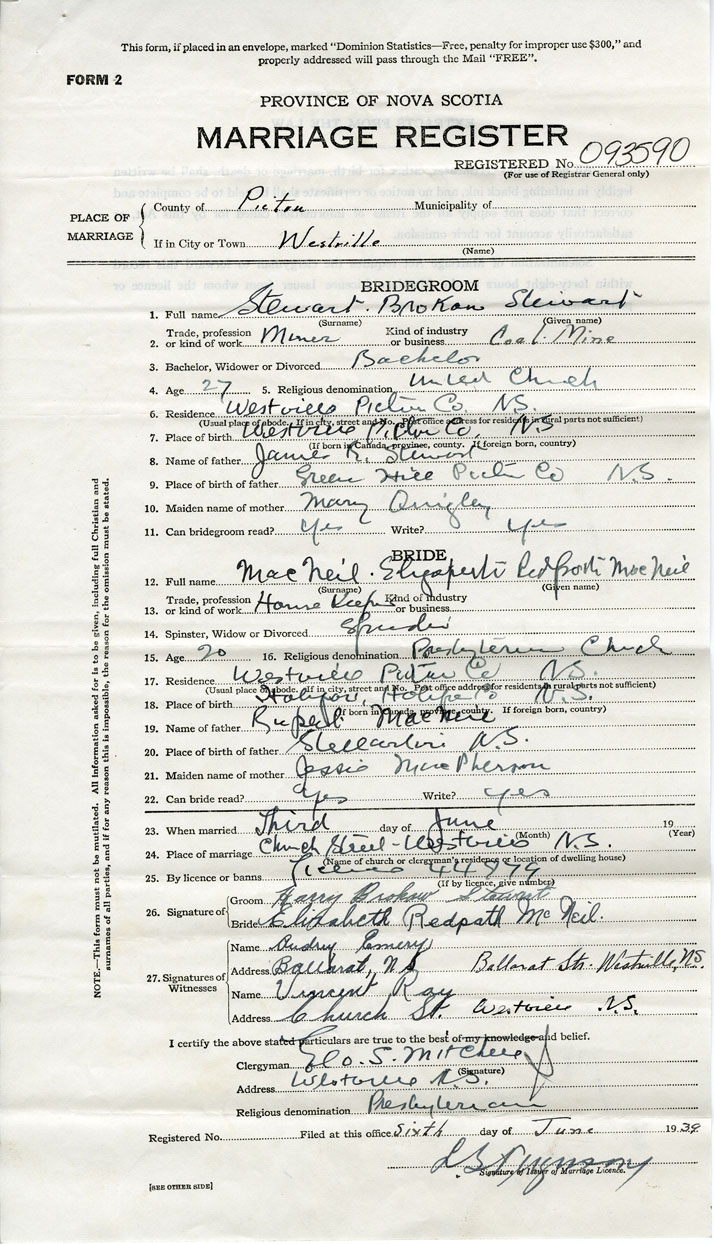 This form, if placed in an envelope, marked "Dominion Statistics—Free, penalty for improper use $300," and
properly addressed will pass through the Mail "FREE".
FORM 2
PROVINCE OF NOVA SCOTIA
MARRIAGE REGISTER
REGISTERED No. 093590
(For use of Registrar General only)
PLACE OF MARRIAGE
County of Pictou Municipality of
If in City or Town Westville
(Name)
BRIDEGROOM
1. Full name Stewart. Brokaw Stewart
(Surname) (Given name)
2. Trade, profession or kind of work Miner Kind of industry or business Coal Mine
3. Bachelor, Widower or Divorced Bachelor
4. Age 27 5. Religious denomination United Church
6. Residence Westville Pictou Co. N.S.
(Usual place of abode. If in city, street and No. Post office address for residents in rural parts not sufficient)
7. Place of birth Westville Pictou Co, N.S
(If born in Canada, province, county. If foreign born, country)
8. Name of father James R. Stewart
9. Place of birth of father Green Hill Pictou Co N.S.
10. Maiden name of mother Mary Quigley
11. Can bridegroom read? Yes Write? Yes
BRIDE
12. Full name MacNeil. Elizabeth Redpath MacNeil
(Surname) (Given name)
13. Trade, profession or kind of work House Keeper Kind of industry or business
14. Spinster, Widow or Divorced Spinster
15. Age 20 16. Religious denomination Presbyterian Church
17. Residence Westville Pictou Co N.S.
(Usual place of abode. If in city, street and No. Post office address for residents in rural parts not sufficient)
18. Place of birth Halifax, Halifax Co N.S.
(If born in Canada, province, county. If foreign born, country)
19. Name of father Rupert MacNeil
20. Place of birth of father Stellarton N.S.
21. Maiden name of mother Jessie MacPherson
22. Can bride read? Yes Write? Yes
23. When married Third day of June 19
(Month) (Year)
24. Place of marriage Church Street - Westville N.S.
(Name of church or clergyman's residence or location of dwelling house)
25. By licence or banns License 44979
(If by licence, give number)
26. Signature of
Groom Harry Brokaw Stewart
Bride Elizabeth Redpath McNeil.
27. Signatures of Witnesses
Name Audrey Emery
Address Ballarat, N.S Ballarat Str. Westville, N.S.
Name Vincent Roy
Address Church St. Westville N.S.
I certify the above stated particulars are true to the best of my knowledge and belief.
Clergyman Geo. S. Mitchell
(Signature)
Address Westville N.S.
Religious denomination Presbyterian
Registered No. Filed at this office Sixth day of June 1939
Signature of Issuer of Marriage Licence.
[SEE OTHER SIDE]
NOTE.—This form must not be mutilated. All information asked for is to be given, including full Christian and
surnames of all parties, and if for any reason this is impossible, the reason for the omission must be stated.